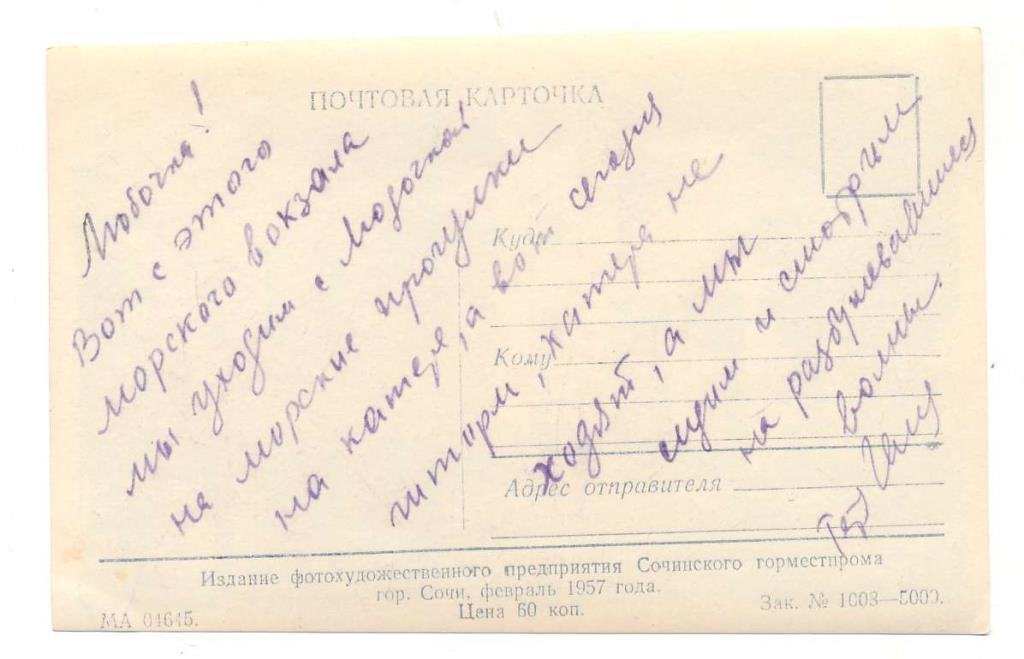 ПОЧТОВАЯ КАРТОЧКА
Любочка!
Вот с этого
морского вокзала
мы уходим с Лидочкой
на морские прогулки
на катере, а вот сегодня
шторм, катера не
ходят, а мы
сидим и смотрим
на разбушевавшиеся
волны.
Куда
Кому
Адрес отправителя
Издание фотохудожественного предприятия Сочинского горместпрома
гор. Сочи, февраль 1957 года.
Цена 60 коп.
МА 04645.
Зак. № 1008—5000.